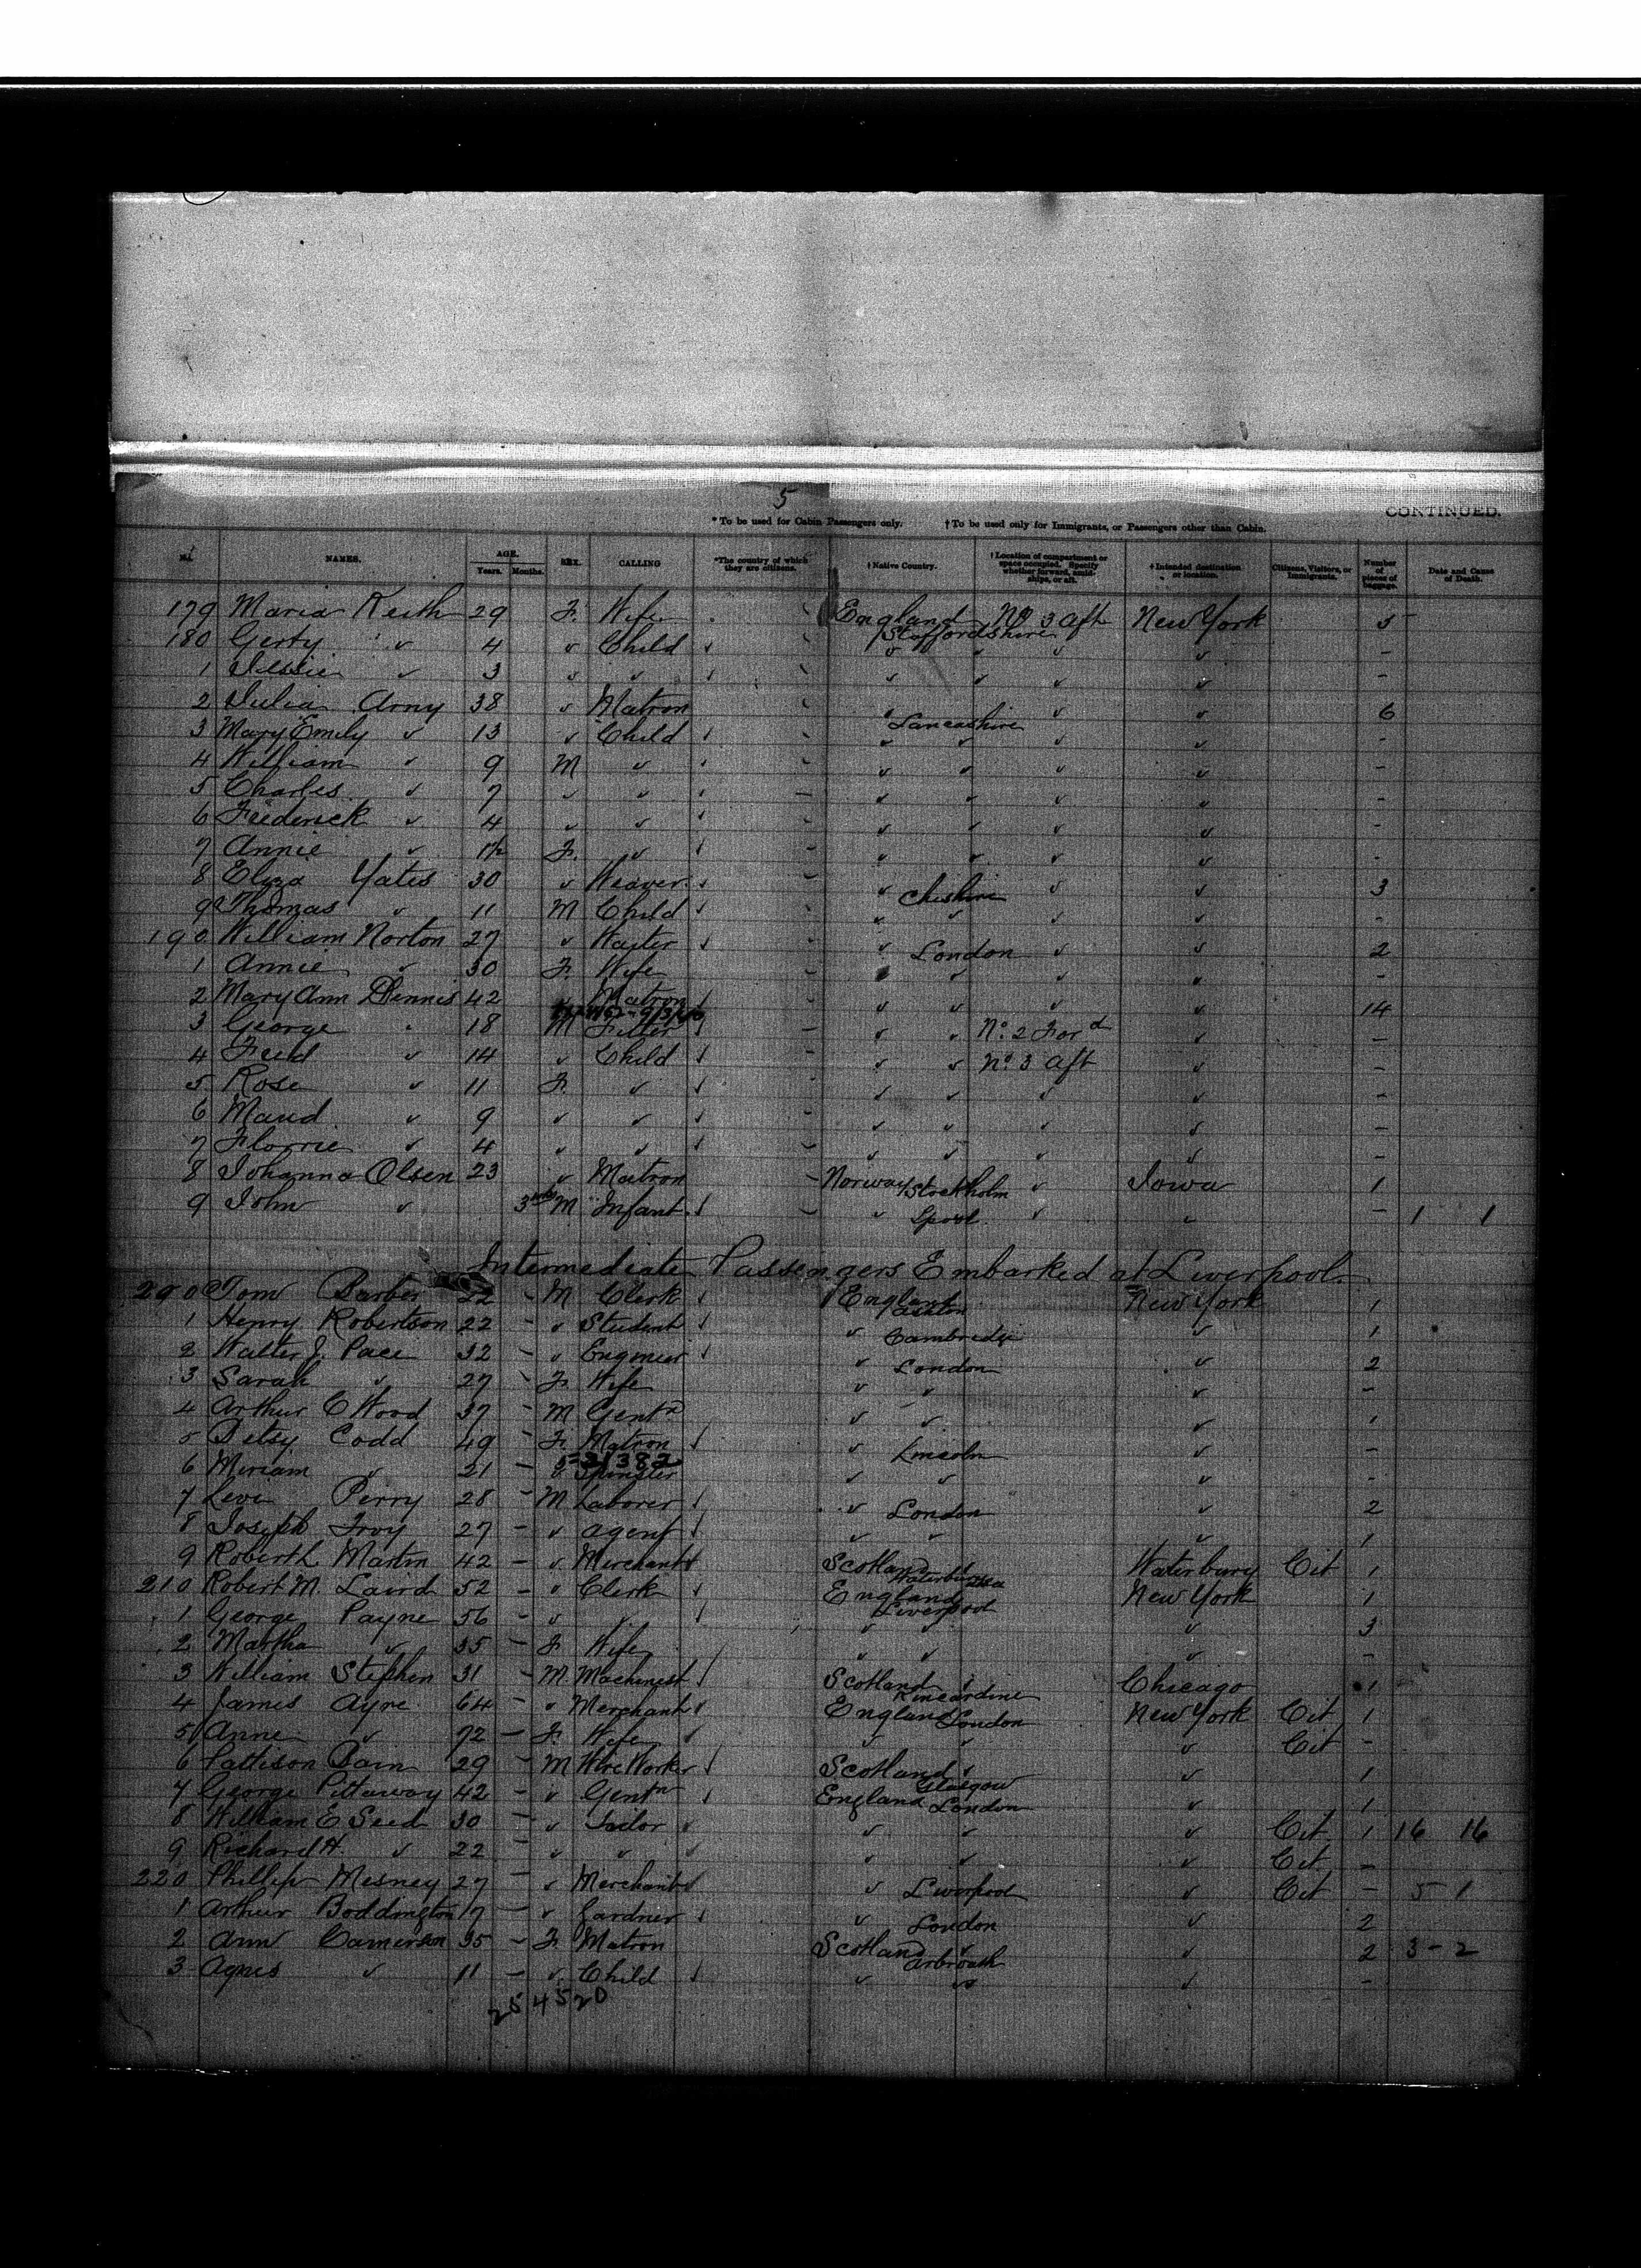 5
CONTINUED.
* To be used for Cabin Passengers only. † To be used only for Immigrants, or Passengers other than Cabin.
No. NAMES. AGE. Years. Months. SEX. CALLING *The country of which they are citizens. † Native Country. † Location of compartment or space occupied. Specify whether forward, amidships, or aft. † Intended destination or location. Citizens, Visitors, or Immigrants. Number of pieces of baggage. Date and Cause of Death.
179 Maria Keith 29 F. Wife England Staffordshire No 3 aft New York 5
180 Gerty " 4 " Child " " " " -
1 Jessie " 3 " " " " " " -
2 Julia Arny 38 " Matron " Lancashire " " 6
3 Mary Emily " 13 " Child " " " " -
4 William " 9 M " " " " " -
5 Charles " 7 " " " " " " -
6 Frederick " 4 " " " " " " -
7 Annie " 1½ F. " " " " " -
8 Eliza Yates 30 " Weaver " Cheshire " " 3
9 Thomas " 11 M Child " " " " -
190 William Norton 27 " Waiter " London " " 2
1 Annie " 30 F. Wife " " " " -
2 Mary Ann Dennis 42 " Matron " " " " 14
3 George " 18 M Fitter " " No. 2 Ford " -
4 Fred " 14 " Child " " No. 3 aft " -
5 Rose " 11 F. " " " " " -
6 Maud " 9 " " " " " " -
7 Florrie " 4 " " " " " " -
8 Johanna Olsen 23 " Matron Norway Stockholm " Iowa 1
9 John " 3 mos M Infant " Lpool " " - 1 1
Intermediate Passengers Embarked at Liverpool.
200 Tom Barber 22 - M Clerk England Ashton New York 1
1 Henry Robertson 22 - " Student " Cambridge " 1
2 Walter J. Pace 32 - " Engineer " London " 2
3 Sarah " 27 - F. Wife " " " -
4 Arthur C Wood 37 - M Gentn " " " 1
5 Betsy Codd 49 - F. Matron " Lincoln " -
6 Miriam " 21 - " Spinster " " " -
7 Levi Perry 28 - M Laborer " London " 2
8 Joseph Troy 27 - " Agent " " " 1
9 Roberth Martin 42 - " Merchant Scotland Waterbury Waterbury Cit 1
210 Robert M. Laird 52 - " Clerk England Liverpool New York 1
1 George Payne 56 - " " " " " 3
2 Martha " 35 - F. Wife " " " -
3 William Stephen 31 - M. Machinest Scotland Kincardine Chicago 1
4 James Ayre 64 - " Merchant England London New York Cit 1
5 Anne " 72 - F. Wife " " " Cit -
6 Pattison Bain 29 - M Wire Worker Scotland Glasgow " 1
7 George Pittaway 42 - " Gentn England London " 1
8 William E Seed 30 - " Tailor " " " Cit 1 16 16
9 Richard H. " 22 - " " " " " Cit -
220 Phillip Mesney 27 - " Merchant " Liverpool " Cit - 5 1
1 Arthur Boddington 17 - " Gardner " London " 2
2 Ann Cameron 35 - F. Matron Scotland Arbroath " 2 3 - 2
3 Agnes " 11 - " Child " " " -
254520